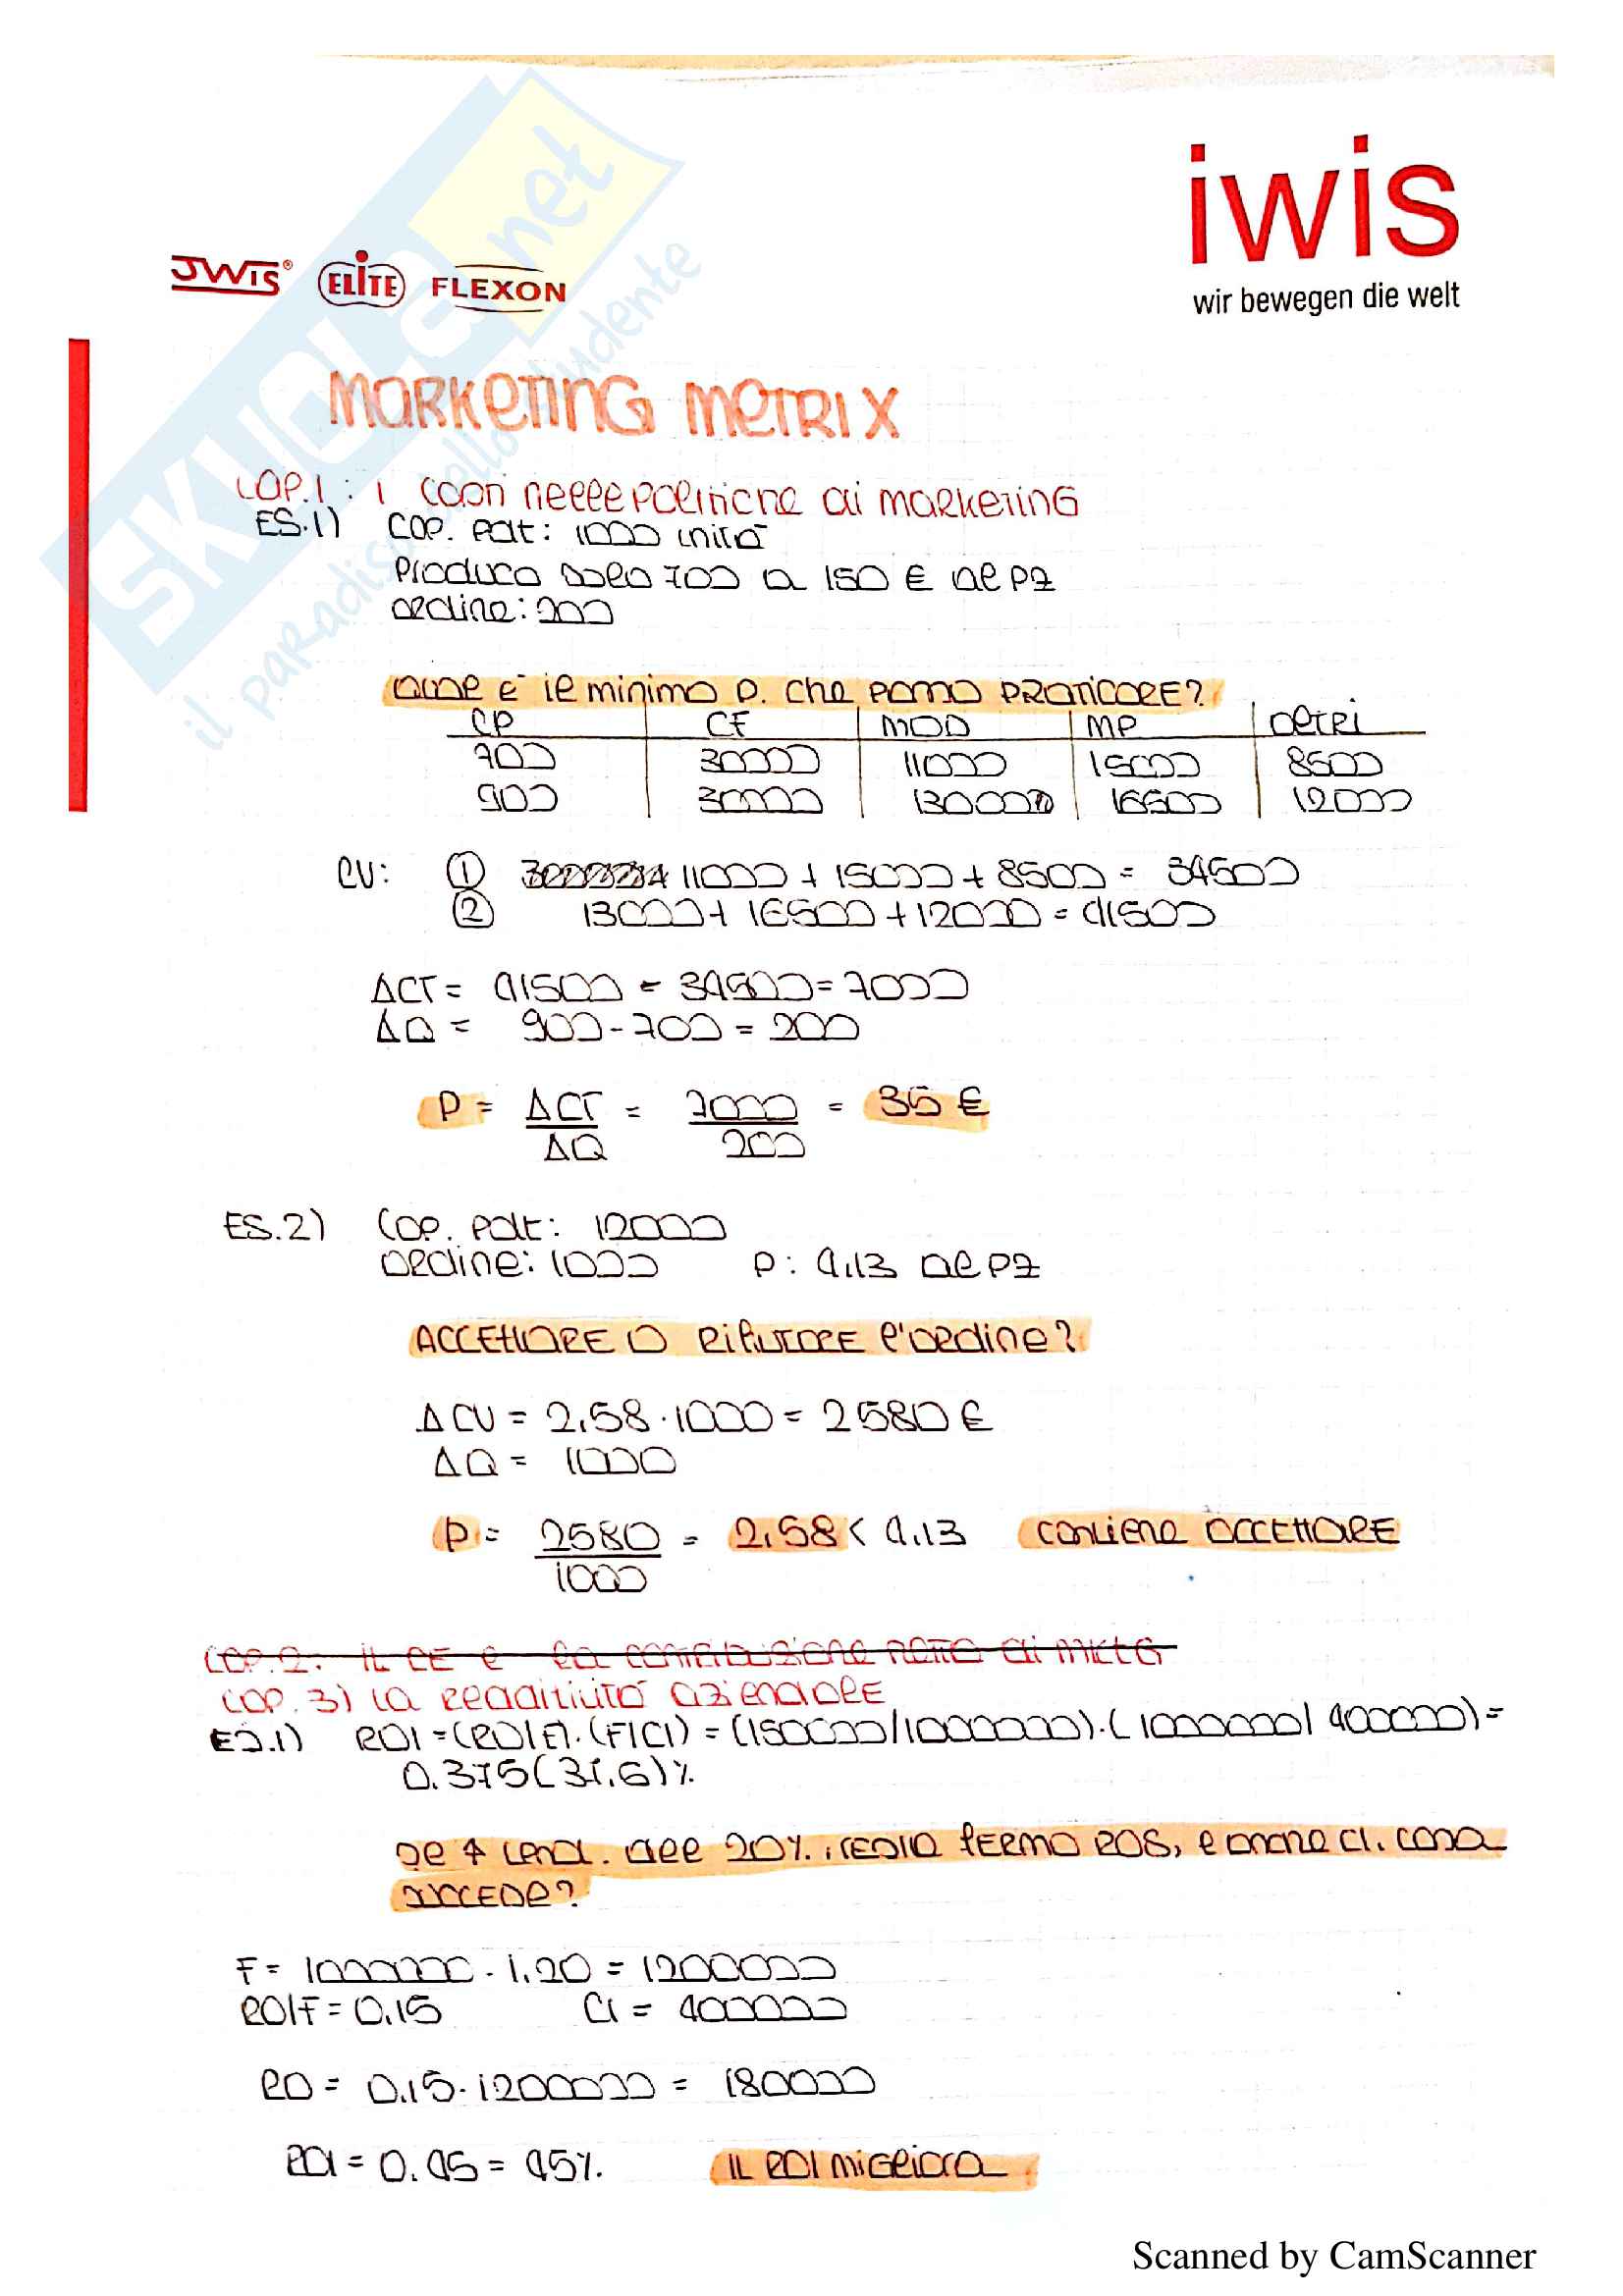 iwis
wir bewegen die welt
JWIS® ELITE FLEXON
SKUOLA.net
il paradiso dello studente
MARKETING METRIX
CAP.1: I COSTI NELLE POLITICHE DI MARKETING
ES.1) CAP. PDT: 1000 UNITÀ
PRODUCO SOLO 700 A 150 € AL PZ
ORDINE: 200
QUAL È IL MINIMO P. CHE POSSO PRATICARE?
CP CF MOD MP ALTRI
700 30000 11000 15000 8500
900 30000 13000 16500 12000
CV: ① 11000 + 15000 + 8500 = 34500
② 13000 + 16500 + 12000 = 41500
ΔCT = 41500 - 34500 = 7000
ΔQ = 900 - 700 = 200
P = ΔCT/ΔQ = 7000/200 = 35 €
ES.2) CAP. PDT: 12000
ORDINE: 1000 P: 4.13 AL PZ
ACCETTARE O RIFIUTARE L'ORDINE?
ΔCV = 2,58 · 1000 = 2580 €
ΔQ = 1000
P = 2580/1000 = 2,58 < 4.13 CONVIENE ACCETTARE
CAP. 2: IL CE E LA CONTRIBUZIONE NETTA DI MKTG
CAP. 3) LA REDDITIVITÀ AZIENDALE
ES.1) ROI = (RO/F) · (F/CI) = (150000/1000000) · (1000000/400000) =
0.375 (37.5)%
SE ↑ VEND. DEL 20%, RESTA FERMO ROS, E ANCHE CI. COSA
SUCCEDE?
F = 1000000 · 1.20 = 1200000
RO/F = 0.15 CI = 400000
RO = 0.15 · 1200000 = 180000
ROI = 0.45 = 45%. IL ROI MIGLIORA
Scanned by CamScanner